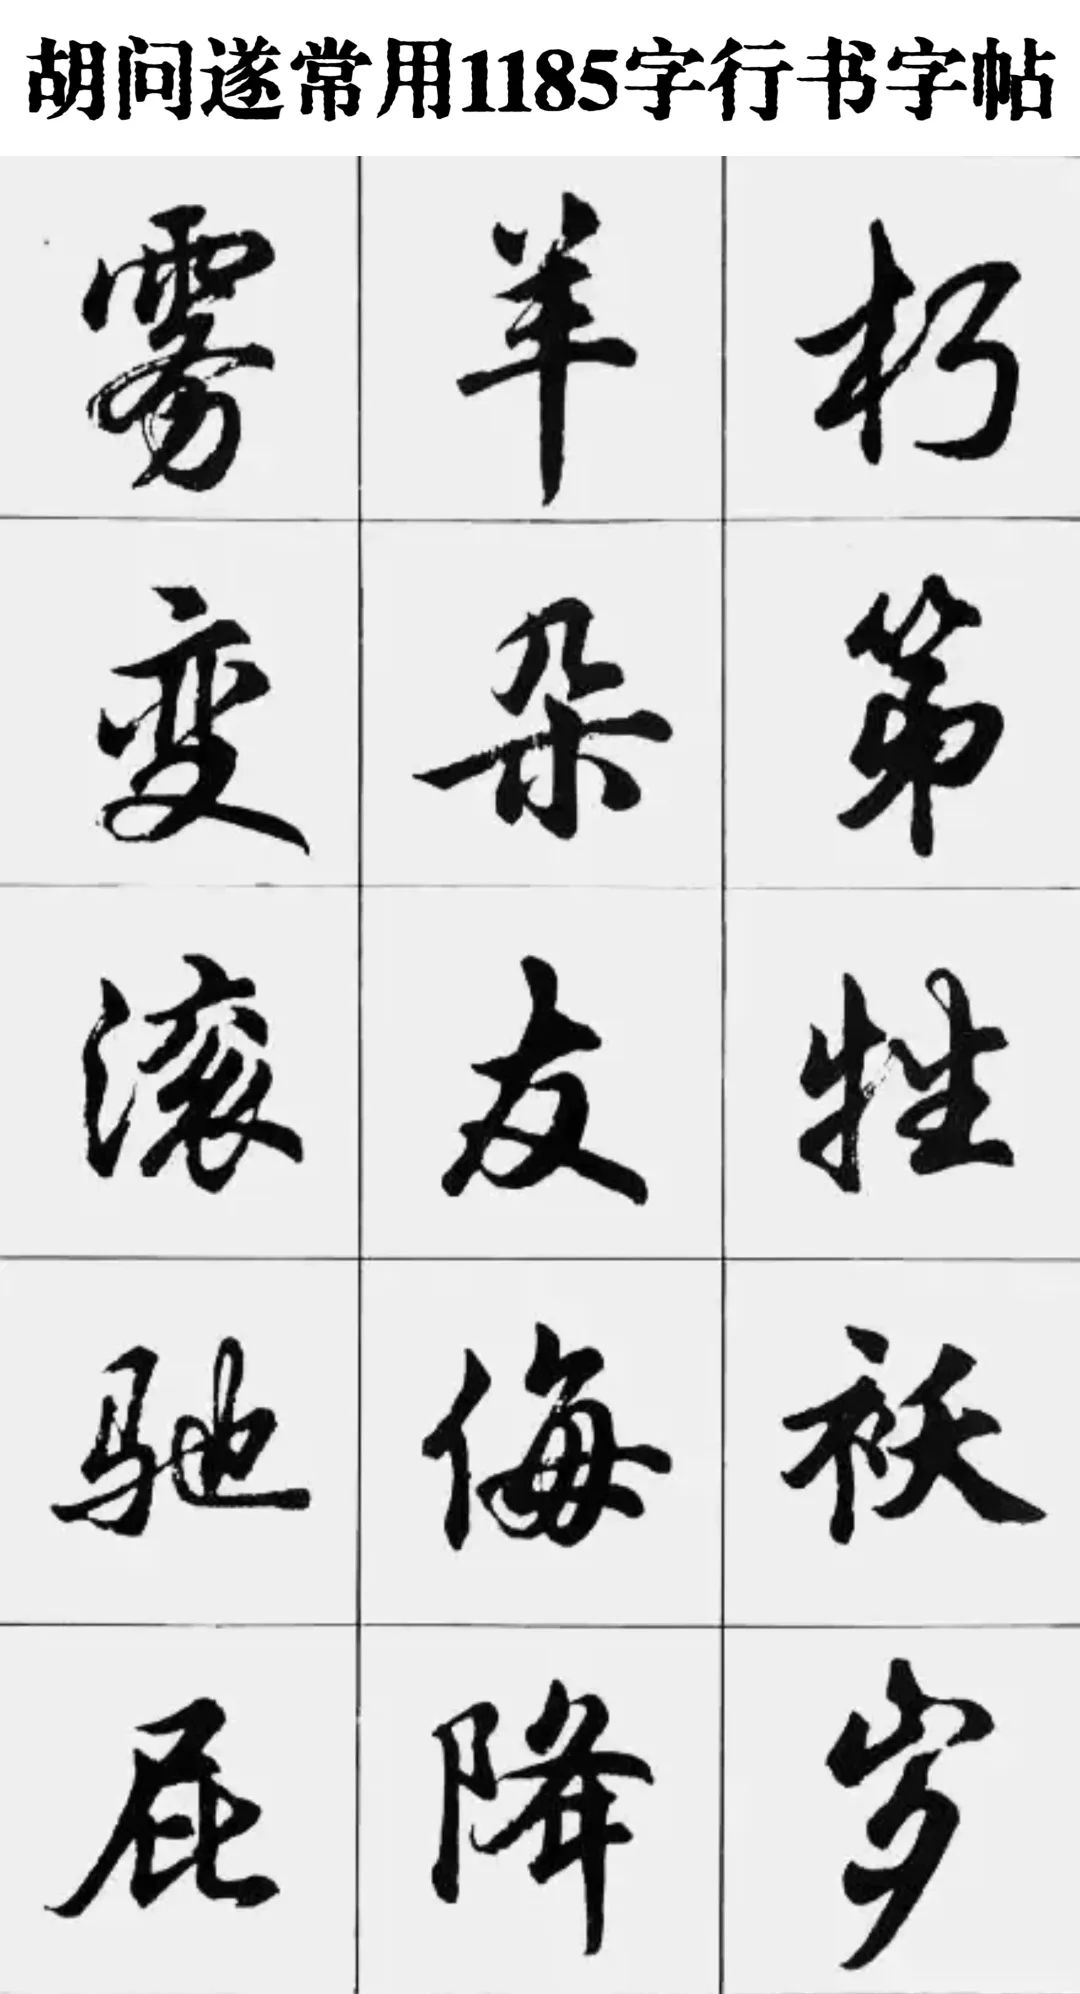 胡问遂常用1185字行书字帖
雾羊朽
变朵第
滚友牲
驰侮袄
屁降岁